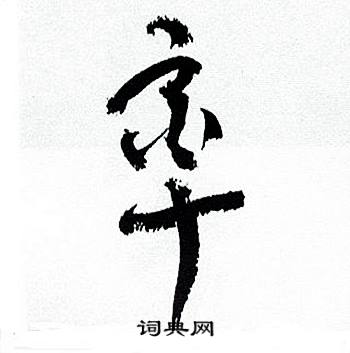 率
词典网